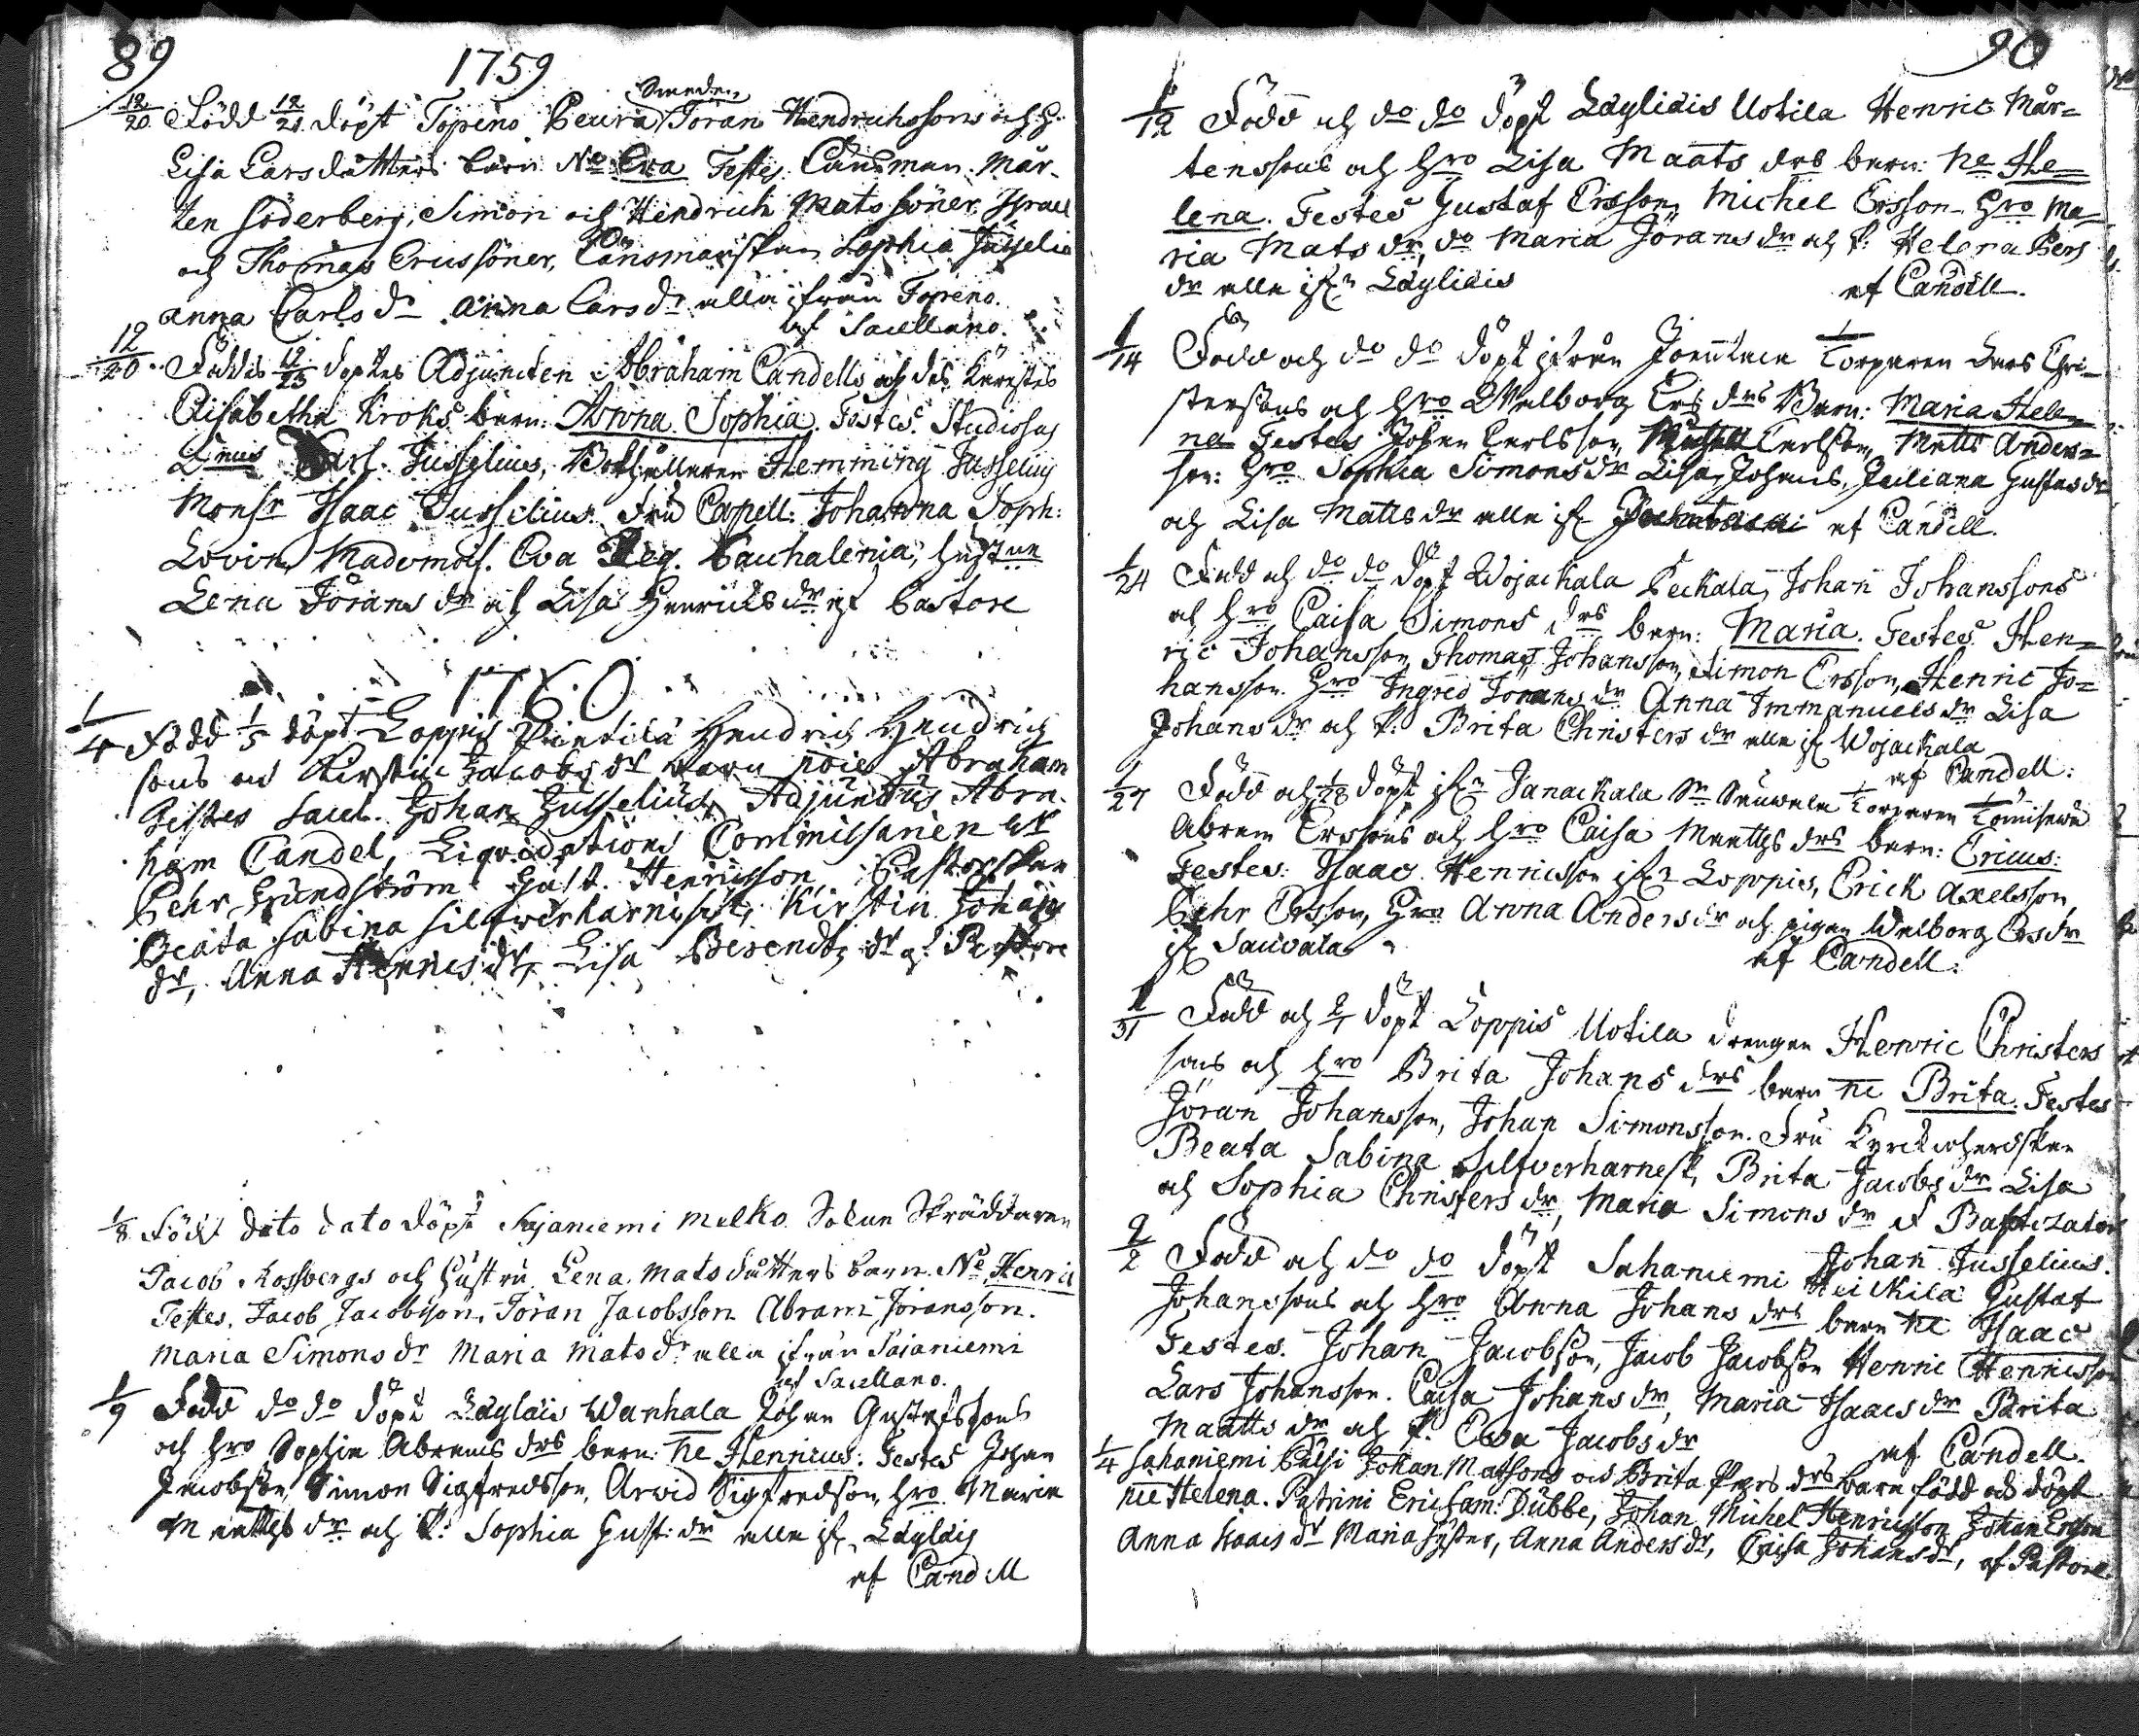 89
1759
12/20 Född 12/21 döpt Topeno Peura Smeden Jöran Hendrichssons och h.
Lisa Larsdätters barn Ne Eva Testes Länsman Mår-
ten Söderberg, Simon och Hendrich Mats söner, Israel
och Thomas Ericssöner, Länsmanskan Sophia Jusselia
Anna Carls dr Anna Lars dr alla ifrån Topeno.
af Sacellano.
12/20 Föddes 12/23 döptes Adjuncten Abraham Candells och des Kärestes
Elisabetha Kroks barn: Anna Sophia. Testes. Studiosus
Dnus Jusselius, Bokhållaren Hemming Jusselius
Monsr Isaac Jusselius. Fru Capell: Johanna Soph:
Lovin, Mademois. Eva Reg. Pauhalenia, hustrun
Lena Jörans dr och Lisa Henrichs dr af Pastore
1760
1/4 Född 1/5 döpt Loppis Pientilä Hendrich Hendrich
sons och Kirstin Jacobs dr barn noie Abraham
Testes Sacel. Johan Jusselius, Adjunctus Abra-
ham Candel, Liqvidations Commissarien hr
Pehr Grundström Gust. Henricsson, Pastorskan
Beata Sabina Silfwerharnisk, Kirstin Johans
dr, Anna Henrics dr, Lisa Berendts dr af Pastore
1/8 Född dato dato döpt Sajaniemi Melko Sokun Skräddaren
Jacob Rossbergs och hustru Lena Mats dätters barn. Ne Henric
Testes, Jacob Jacobsson, Jöran Jacobsson Abram Jöransson.
Maria Simons dr Maria Mats dr alla ifrån Sajaniemi
af Sacellano.
1/9 Född do do döpt Läyläis Wanhala Johan Gustafssons
och hro Sophia Abrams drs barn: ne Henricus: Testes Johan
Jacobsson, Simon Sigfredsson, Arvid Sigfredsson, hro Maria
Matths dr och P: Sophia Gust: dr alla ifr. Läyläis
af Candell
90
1/12 Född och do do döpt Läyliäis Uotila Henric Mår-
tenssons och hro Lisa Maats drs barn: ne He-
lena. Testes Gustaf Ersson, Michel Ersson hro Ma-
ria Mats dr, do Maria Jörans dr och P: Helena Pers
dr alla ifrn Läyliäis
af Candell.
1/14 Född och do do döpt ifrån Torparen Lars Chri-
sterssons och hro Walborg Ers drs Barn: Maria Hele-
na Testes Johan Carlsson, Carlsson, Matts Anders-
son: hro Sophia Simons dr Lisa Johans, Juliana Gustafs dr
och Lisa Matts dr alla ifr af Candell.
1/24 Född och do do döpt Wojackala Peckala, Johan Johanssons
och hro Caisa Simons drs barn: Maria. Testes Hen-
ric Johansson, Thomas Johansson, Simon Ersson, Henric Jo-
hansson. hro Ingrid Jörans dr Anna Immanuels dr Lisa
Johans dr och P: Brita Christers dr alla ifr Wojackala
af Candell:
1/27 Född och 1/28 döpt ifrn Janackala Sn Sauwala Torparen
Abram Erssons och hro Caisa Matths drs barn: Ericus:
Testes: Isaac Henricsson ifrn Loppis, Erick Axelsson,
Pehr Ersson, Hro Anna Anders dr och pigan Walborg Ers dr
ifr Sauvala
af Candell.
1/31 Född och 2/1 döpt Loppis Uotila drengen Henric Christers
sons och hro Brita Johans drs barn ne Brita. Testes
Jöran Johansson, Johan Simonsson. Fru Kyrckioherdskan
Beata Sabina Silfverharnesk, Brita Jacobs dr Lisa
och Sophia Christers dr, Maria Simons dr af Baptizator
Johan Jusselius.
2/2 Född och do do döpt Sahaniemi Heickilä Gustaf
Johanssons och hro Anna Johans drs barn ne Isaac
Testes. Johan Jacobsson, Jacob Jacobsson Henric Henricsson
Lars Johansson. Caisa Johans dr, Maria Isaacs dr Brita
Maatts dr och P. Ewa Jacobs dr
af Candell.
1/4 Sahaniemi Pälsi Johan Matsons och Brita Pers drs barn född och döpt
nie Helena. Patrini Eric Sam: Dubbe, Johan Michel Henricsson Johan Ersson
Anna Isaacs dr Maria syster, Anna Anders dr, Caisa Johans dr, af Pastore.